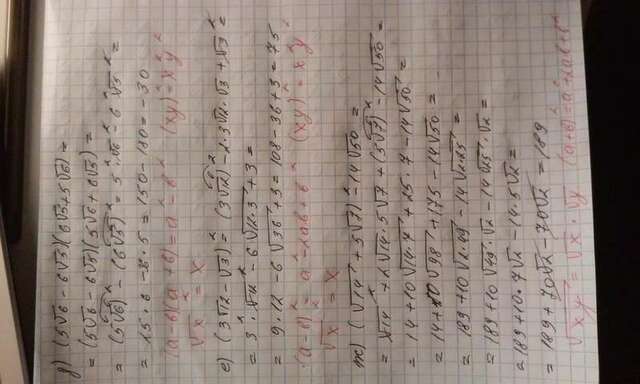 д) (5√6 - 6√5)(6√5 + 5√6) =
= (5√6 - 6√5)(5√6 + 6√5) =
= (5√6)² - (6√5)² = 5²·√6² - 6²·√5² =
= 25·6 - 36·5 = 150 - 180 = -30
(a-b)(a+b) = a² - b² (xy)² = x²y²
√x² = x
е) (3√12 - √3)² = (3√12)² - 2·3√12·√3 + √3² =
= 3²·√12² - 6√12·3 + 3 =
= 9·12 - 6√36 + 3 = 108 - 36 + 3 = 75
(a-b)² = a² - 2ab + b² (xy)² = x²y²
√x² = x
ж) (√14 + 5√7)² - 14√50 =
= √14² + 2√14·5√7 + (5√7)² - 14√50 =
= 14 + 10√14·7 + 25·7 - 14√50 =
= 14 + 10√98 + 175 - 14√50 =
= 189 + 10√2·49 - 14√2·25 =
= 189 + 10√49·√2 - 14√25·√2 =
= 189 + 10·7√2 - 14·5√2 =
= 189 + 70√2 - 70√2 = 189
√xy = √x·√y (a+b)² = a² + 2ab + b²